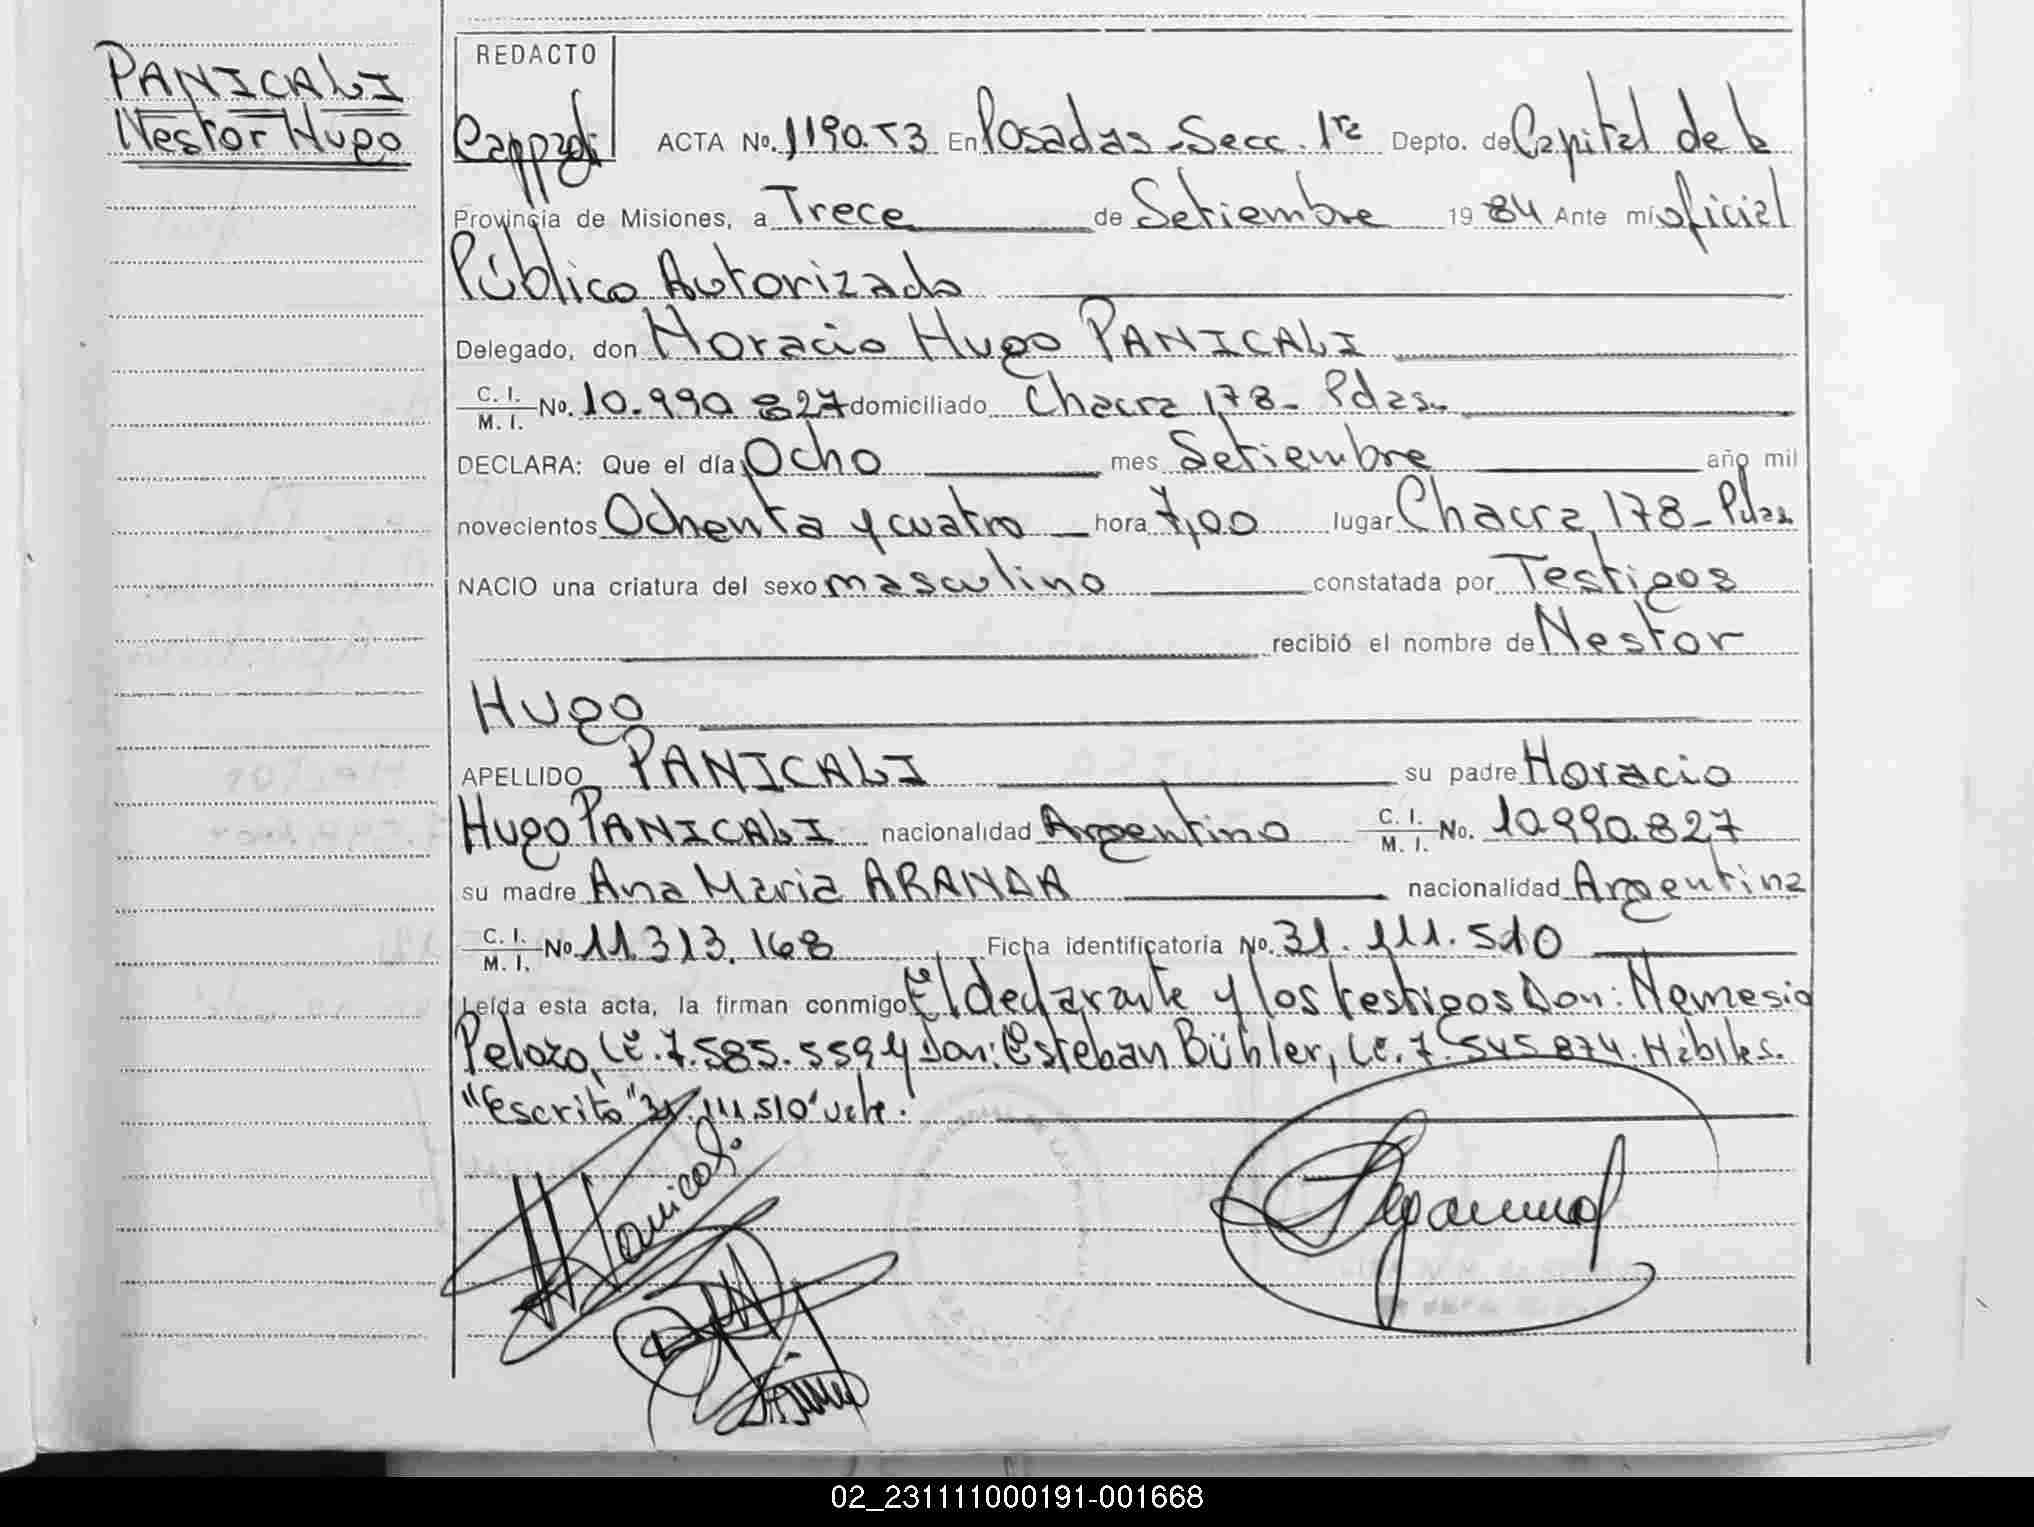 PANICALI
Nestor Hugo
REDACTO
Cappadi
ACTA No. 1190.T3 En Posadas - Secc. 1ra Depto. de Capital de la
Provincia de Misiones, a Trece de Setiembre 1984 Ante mí oficial
Público Autorizado
Delegado, don Horacio Hugo PANICALI
C. I. / M. I. No. 10.990.827 domiciliado Chacra 178 - Pdas.
DECLARA: Que el día Ocho mes Setiembre año mil
novecientos Ochenta y cuatro hora 7,00 lugar Chacra 178 - Pdas.
NACIO una criatura del sexo masculino constatada por Testigos
recibió el nombre de Nestor
Hugo
APELLIDO PANICALI su padre Horacio
Hugo PANICALI nacionalidad Argentino C. I. / M. I. No. 10.990.827
su madre Ana Maria ARANDA nacionalidad Argentina
C. I. / M. I. No. 11.313.168 Ficha identificatoria No. 31.111.510
Leída esta acta, la firman conmigo El declarante y los testigos Don: Nemesio
Pelozo, L.E. 7.585.559 y Don: Esteban Bühler, L.E. 7.545.874. Hábiles.
"Escrito" 31.111.510 "vale.
H Panicali
02_231111000191-001668